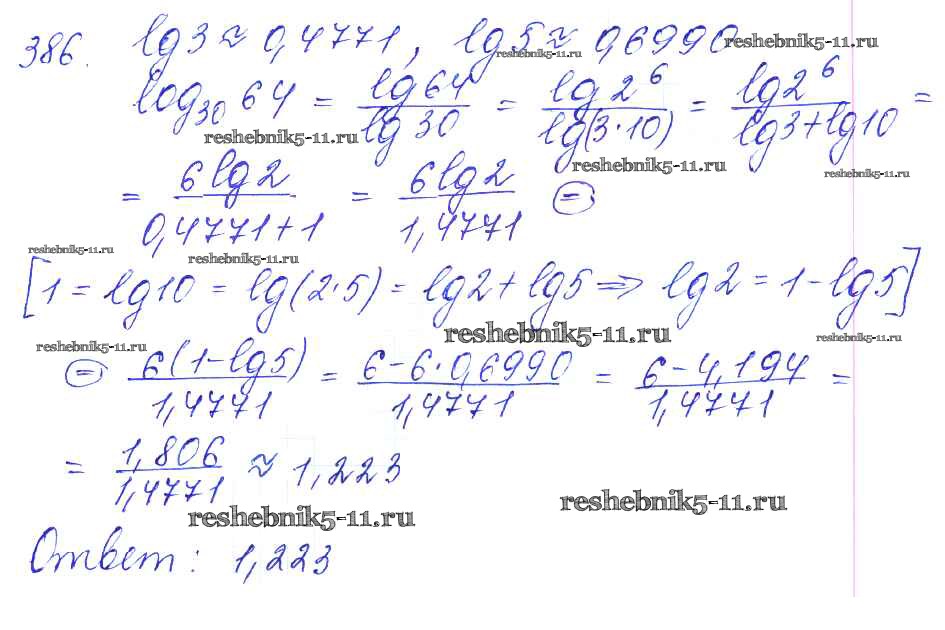 386. lg3 ≈ 0,4771, lg5 ≈ 0,6990 reshebnik5-11.ru
reshebnik5-11.ru
log₃₀ 64 = lg64 / lg30 = lg2⁶ / lg(3·10) = lg2⁶ / lg3+lg10 =
reshebnik5-11.ru
reshebnik5-11.ru
reshebnik5-11.ru
= 6lg2 / 0,4771+1 = 6lg2 / 1,4771 =
reshebnik5-11.ru
reshebnik5-11.ru
[1 = lg10 = lg(2·5) = lg2 + lg5 => lg2 = 1 - lg5]
reshebnik5-11.ru
reshebnik5-11.ru
reshebnik5-11.ru
= 6(1-lg5) / 1,4771 = 6-6·0,6990 / 1,4771 = 6-4,194 / 1,4771 =
= 1,806 / 1,4771 ≈ 1,223
reshebnik5-11.ru
reshebnik5-11.ru
Ответ: 1,223